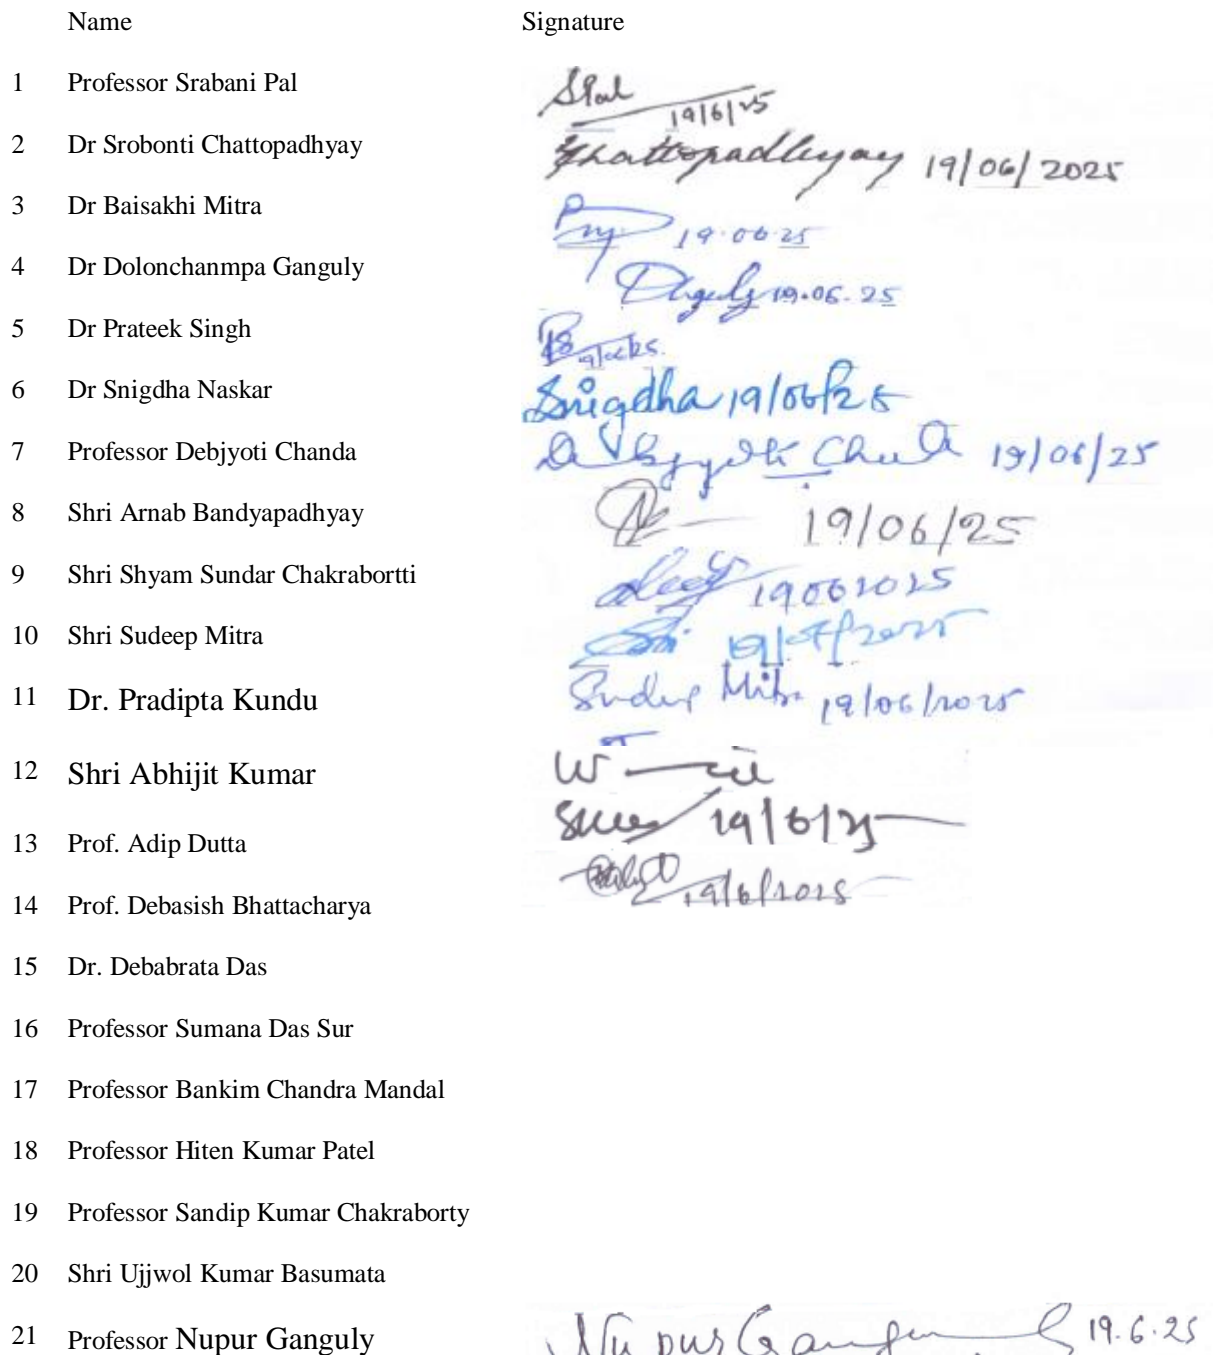 Name Signature
1 Professor Srabani Pal SPal 19/6/25
2 Dr Srobonti Chattopadhyay Chattopadhyay 19/06/2025
3 Dr Baisakhi Mitra 19.06.25
4 Dr Dolonchanmpa Ganguly 19.06.25
5 Dr Prateek Singh
6 Dr Snigdha Naskar Snigdha 19/06/25
7 Professor Debjyoti Chanda Debjyoti Chanda 19/06/25
8 Shri Arnab Bandyapadhyay 19/06/25
9 Shri Shyam Sundar Chakrabortti 19062025
10 Shri Sudeep Mitra
11 Dr. Pradipta Kundu Sudeep Mitra 19/06/2025
12 Shri Abhijit Kumar
19/6/25
13 Prof. Adip Dutta
19/6/2025
14 Prof. Debasish Bhattacharya
15 Dr. Debabrata Das
16 Professor Sumana Das Sur
17 Professor Bankim Chandra Mandal
18 Professor Hiten Kumar Patel
19 Professor Sandip Kumar Chakraborty
20 Shri Ujjwol Kumar Basumata
21 Professor Nupur Ganguly Nupur Ganguly 19.6.25